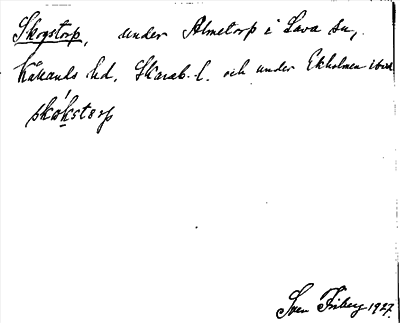 Skogstorp, under Almetorp i Lava sn,
Kållands hd, Skarab. l. och under Ekholmen ibid
skókstorp
Sven Friberg 1927.